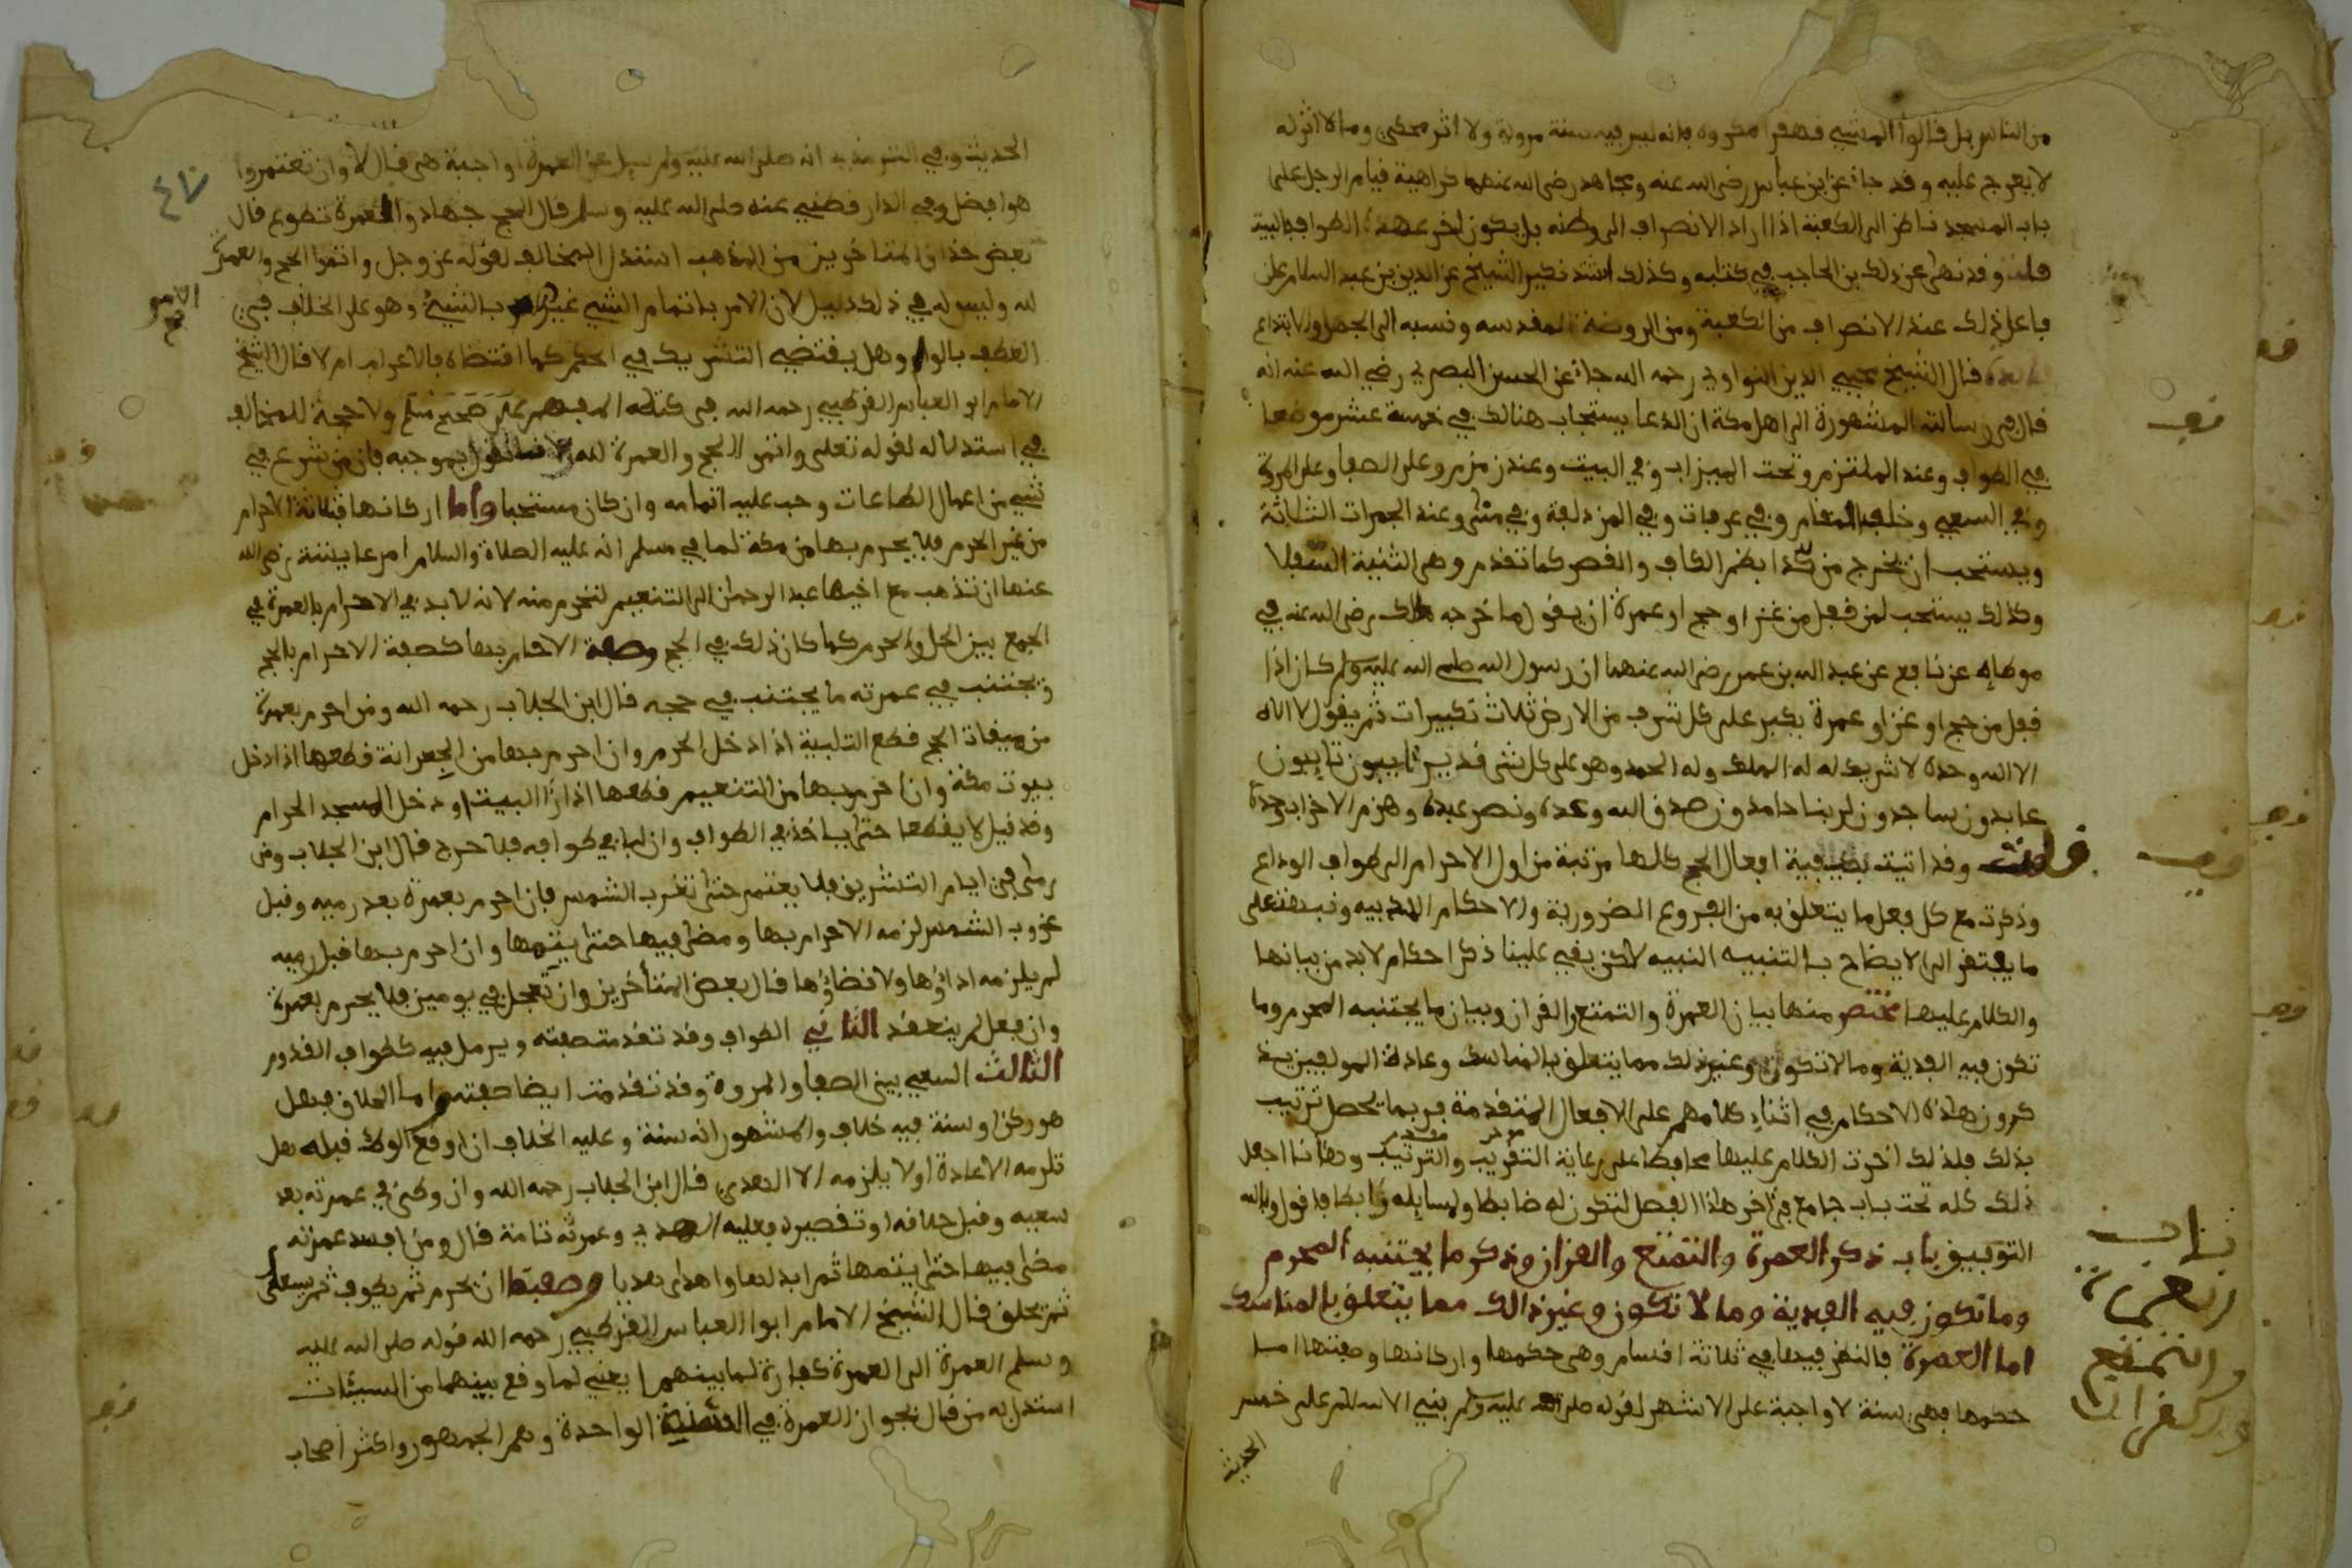 من الناس بل قالوا المشي قهقرا مكروه فانه ليس فيه سنة مروية ولا اثر محكي وما لا اثر له
لا يعرج عليه وقد جاء عن ابن عباس رضي الله عنه ومجاهد رضي الله عنهما كراهية قيام الرجل على
باب المسجد ناظر الى الكعبة اذا اراد الانصراف الى وطنه بل يكون اخر عهده الطواف بالبيت
قلت وقد نهى عن ذلك بن الحاجب في كتابه وكذلك اشتد نكير الشيخ عز الدين بن عبد السلام على
فاعل ذلك عند الانصراف من الكعبة ومن الروضة المقدسه ونسبه الى الجهل والابتداع
قال الشيخ محيي الدين النواوي رحمه الله جاء عن الحسن البصري رضي الله عنه انه
قال في رسالته المشهورة الى اهل مكة ان الدعا يستجاب هنالك في خمسة عشر موضعا
في الطواف وعند الملتزم وتحت الميزاب وفي البيت وعند زمزم وعلى الصفا وعلى المروة
وفي السعي وخلف المقام وفي عرفات وفي المزدلفة وفي منى وعند الجمرات الثلاثة
ويستحب ان يخرج من كدا بضم الكاف والقصر كما تقدم وهي الثنية السفلا
وكذلك يستحب لمن قفل من غزا او حج او عمرة ان يقول ما خرجه مالك رضي الله عنه في
موطاه عن نافع عن عبد الله بن عمر رضي الله عنهما ان رسول الله صلى الله عليه وسلم كان اذا
قفل من حج او غزا او عمرة يكبر على كل شرف من الارض ثلاث تكبيرات ثم يقول لا اله
الا الله وحده لا شريك له له الملك وله الحمد وهو على كل شي قدير ايبون تايبون
عابدون ساجدون لربنا حامدون صدق الله وعده ونصر عبده وهزم الاحزاب وحده
قلت وقد اتيت بكيفية افعال الحج كلها مرتبة من اول الاحرام الى طواف الوداع
وذكرت مع كل فعل ما يتعلق به من الفروع الضرورية والاحكام الادبيه ونبهت على
ما يفتقر الى الايضاح بالتنبيه النبيه لاكن بقي علينا ذكر احكام لا بد من بيانها
والكلام عليها مختصر منها بيان العمرة والتمتع والقران وبيان ما يجتنبه المحرم وما
تكون فيه الفدية وما لا تكون وغير ذلك مما يتعلق بالمناسك وعادة المولفين يذ
كرون هاذه الاحكام في اثناء كلامهم على الافعال المتقدمة فربما يحصل ترتيب
بذلك فلذلك اخرت الكلام عليها محافظا على رعاية التقريب والترتيب وهانا اجعل
ذلك كله تحت باب جامع في اخر هاذا الفصل لتكون له ضابطا ولمسايله رابطا فاقول وبالله
التوفيق باب ذكر العمرة والتمتع والقران وذكر ما يجتنبه المحرم
وما تكون فيه الفدية وما لا تكون وغير ذالك مما يتعلق بالمناسك
اما العمرة فالنظر فيها في ثلاثة اقسام وهي حكمها واركانها وصفتها اما
حكمها فهي سنة لا واجبة على الاشهر لقوله صلى الله عليه وسلم بني الاسلام على خمس
الحديث
باب
العمرة
والتمتع
والقران
الحديث وفي الترمذي انه صلى الله عليه وسلم سيل عن العمرة اواجبة هي قال لا وان تعتمروا
هو افضل وفي الدارقطني عنه صلى الله عليه وسلم قال الحج جهاد والعمرة تطوع قال
بعض حذاق المتاخرين من المذهب استدل المخالف لقوله عز وجل واتموا الحج والعمرة
لله وليس له في ذلك دليل لان الامر باتمام الشي غير الامر بالشيء وهو على الخلاف في
العطف بالواو وهل يقتضي التشريك في الحكم كما اقتضاه بالاعراب ام لا قال الشيخ
الامام ابو العباس القرطبي رحمه الله في كتابه المفهم على صحيح مسلم ولا حجة للمخالف
في استدلاله لقوله تعلى واتموا الحج والعمرة لله لانا نقول بموجبه فان من شرع في
شيء من اعمال الطاعات وجب عليه اتمامه وان كان مستحبا واما اركانها فثلاثة الاحرام
من غير الحرم فلا يحرم بها من مكة لما في مسلم انه عليه الصلاة والسلام امر عايشة رضي الله
عنها ان تذهب مع اخيها عبد الرحمان الى التنعيم لتحرم منه لانه لا بد في الاحرام بالعمرة في
الجمع بين الحل والحرم كما كان ذلك في الحج وصفة الاحرام بها كصفة الاحرام بالحج
ويجتنب في عمرته ما يجتنب في حجه قال ابن الجلاب رحمه الله ومن احرم بعمرة
من ميقات الحج قطع التلبية اذا دخل الحرم وان احرم بها من الجعرانة قطعها اذا دخل
بيوت مكة وان احرم بها من التنعيم قطعها اذا راا البيت او دخل المسجد الحرام
وقد قيل لا يقطعها حتى ياخذ في الطواف وان لبا في طوافه فلا حرج قال ابن الجلاب ومن
رمى في ايام التشريق فلا يعتمر حتى تغرب الشمس فان احرم بعمرة بعد رميه وقبل
غروب الشمس لزمه الاحرام بها ومضى فيها حتى يتمها وان احرم بها قبل رميه
لم يلزمه اداؤها ولا قضاؤها قال بعض المتأخرين وان تعجل في يومين فلا يحرم بعمرة
وان فعل لم ينعقد الثاني الطواف وقد تقدمت صفته ويرمل فيه كطواف القدوم
الثالث السعي بين الصفا والمروة وقد تقدمت ايضا صفته واما الحلاق فهل
هو ركن او سنة فيه خلاف والمشهور انه سنة وعليه الخلاف ان اوقع الوطء قبله هل
تلزمه الاعادة او لا يلزمه الا الهدي قال ابن الجلاب رحمه الله وان وطئ في عمرته بعد
سعيه وقبل حلاقه او تقصيره فعليه الهدي وعمرته تامة قال ومن افسد عمرته
مضى فيها حتى يتمها ثم ابدلها واهدى هديا وصفتها ان يحرم ثم يطوف ثم يسعى
ثم يحلق قال الشيخ الامام ابوا العباس القرطبي رحمه الله قوله صلى الله عليه
وسلم العمرة الى العمرة كفارة لما بينهما يعني لما وقع بينهما من السيئات
استدل به من قال بجواز العمرة في السنة الواحدة وهم الجمهور واكثر اصحاب